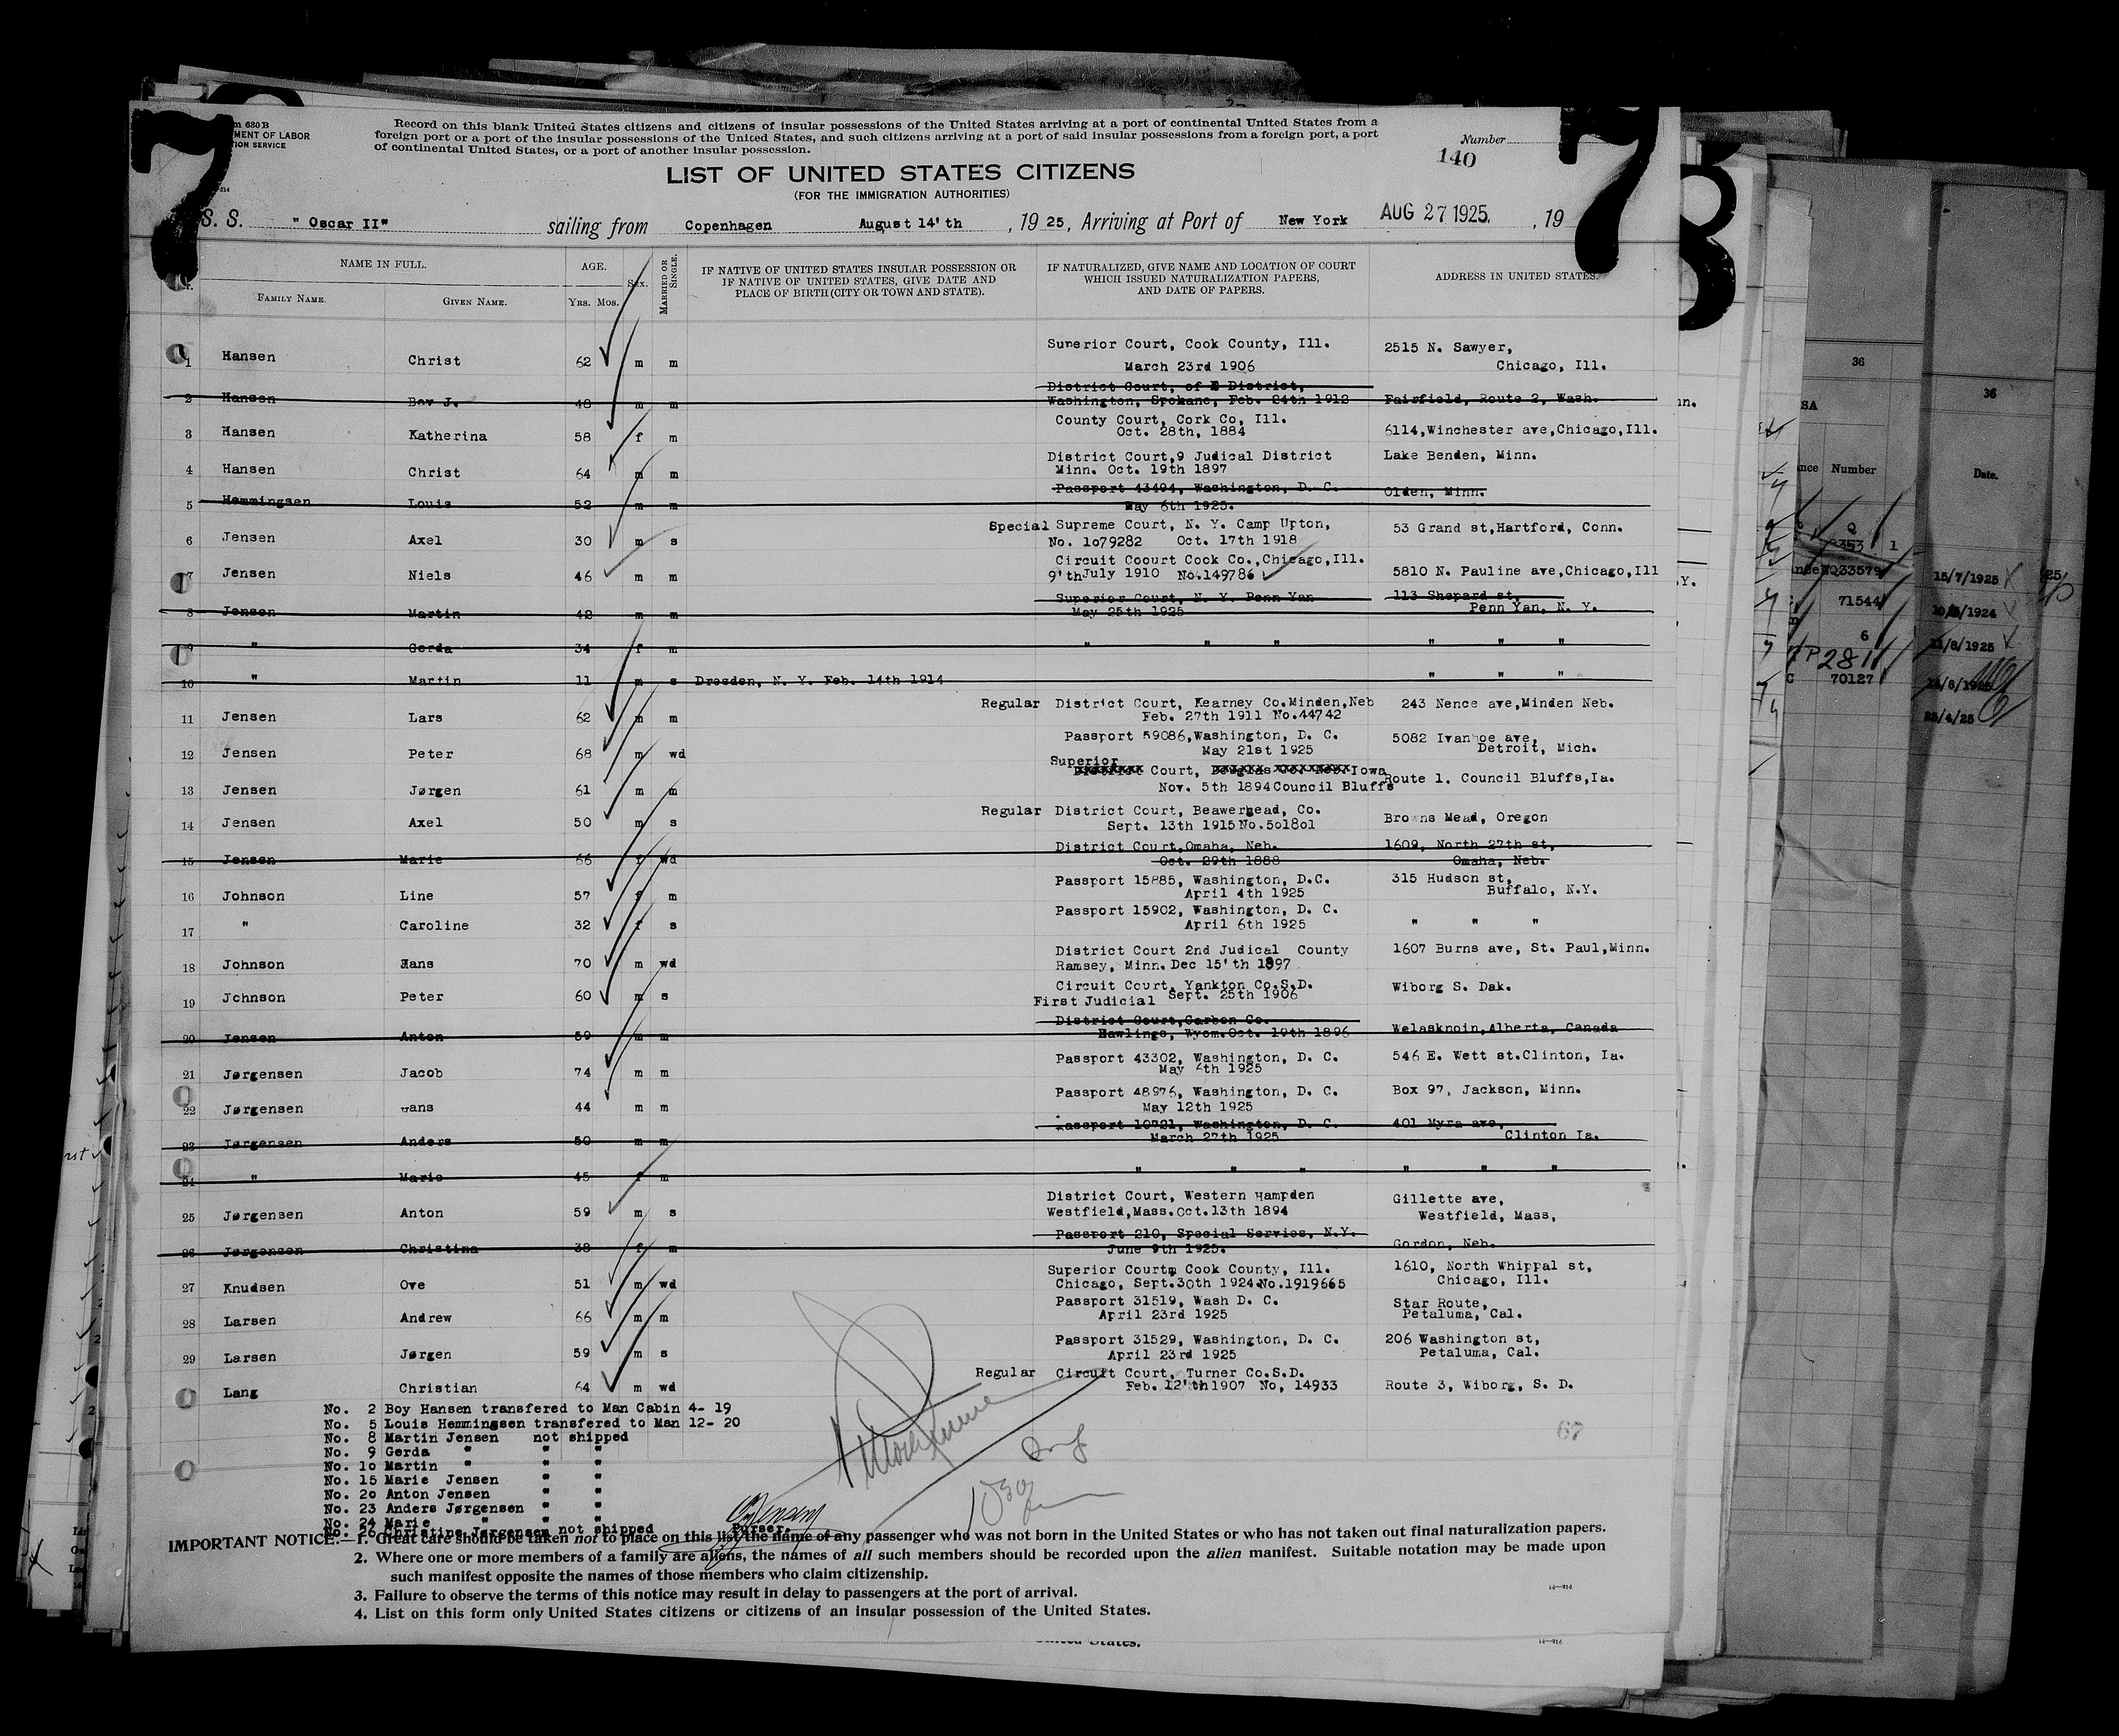 7
7
8
m 630 B
MENT OF LABOR
TION SERVICE
Record on this blank United States citizens and citizens of insular possessions of the United States arriving at a port of continental United States from a
foreign port or a port of the insular possessions of the United States, and such citizens arriving at a port of said insular possessions from a foreign port, a port
of continental United States, or a port of another insular possession.
Number
140
LIST OF UNITED STATES CITIZENS
(FOR THE IMMIGRATION AUTHORITIES)
S. S. "Oscar II" sailing from Copenhagen August 14'th , 19 25, Arriving at Port of New York AUG 27 1925. , 19
NAME IN FULL. AGE. Sex. MARRIED OR SINGLE.
FAMILY NAME. GIVEN NAME. YRS. MOS.
IF NATIVE OF UNITED STATES INSULAR POSSESSION OR
IF NATIVE OF UNITED STATES, GIVE DATE AND
PLACE OF BIRTH (CITY OR TOWN AND STATE).
IF NATURALIZED, GIVE NAME AND LOCATION OF COURT
WHICH ISSUED NATURALIZATION PAPERS,
AND DATE OF PAPERS.
ADDRESS IN UNITED STATES.
1 Hansen Christ 62 m m Superior Court, Cook County, Ill. 2515 N. Sawyer,
March 23rd 1906 Chicago, Ill.
District Court, of E District,
2 Hansen Boy J. 48 m m Washington, Spokane, Feb. 24th 1912 Fairfield, Route 2, Wash.
County Court, Cork Co, Ill.
3 Hansen Katherina 58 f m Oct. 28th, 1884 6114,Winchester ave,Chicago,Ill.
4 Hansen Christ 64 m m District Court,9 Judical District Lake Benden, Minn.
Minn. Oct. 19th 1897
Passport 43494, Washington, D. C. Olden, Minn.
5 Hemmingsen Louis 52 m m May 6th 1925.
Special Supreme Court, N. Y. Camp Upton, 53 Grand st,Hartford, Conn.
6 Jensen Axel 30 m s No. 1o79282 Oct. 17th 1918
Circuit Coourt Cook Co.,Chicago,Ill.
7 Jensen Niels 46 m m 9'th July 1910 No.149786 5810 N. Pauline ave,Chicago,Ill
Superior Court, N. Y. Penn Yan 113 Shepard st,
8 Jensen Martin 42 m m May 25th 1925 Penn Yan, N. Y.
9 " Gerda 34 f m " " " " " "
10 " Martin 11 m s Dresden, N. Y. Feb. 14th 1914 " " "
Regular District Court, Kearney Co.Minden,Neb 243 Nence ave,Minden Neb.
11 Jensen Lars 62 m m Feb. 27th 1911 No.44742
Passport 59086,Washington, D. C. 5082 Ivanhoe ave,
12 Jensen Peter 68 m wd May 21st 1925 Detroit, Mich.
Superior
District Court, Douglas Co. Neb.Iowa Route 1. Council Bluffs,Ia.
13 Jensen Jørgen 61 m m Nov. 5th 1894 Council Bluffs
Regular District Court, Beawerhead, Co. Browns Mead, Oregon
14 Jensen Axel 50 m s Sept. 13th 1915 No.5o18o1
District Court,Omaha, Neb. 1609, North 27th st,
15 Jensen Marie 66 f wd Oct. 29th 1888 Omaha, Neb.
Passport 15885, Washington, D.C. 315 Hudson st,
16 Johnson Line 57 f m April 4th 1925 Buffalo, N.Y.
Passport 15902, Washington, D. C.
17 " Caroline 32 f s April 6th 1925 " " "
District Court 2nd Judical County 1607 Burns ave, St. Paul,Minn.
18 Johnson Hans 70 m wd Ramsey, Minn. Dec 15'th 1897
Circuit Court, Yankton Co.S.D. Wiborg S. Dak.
19 Johnson Peter 60 m s First Judicial Sept. 25th 1906
District Court,Carbon Co.
20 Jensen Anton 59 m m Rawlings, Wyom.Oct. 19th 1896 Welasknoin,Alberta, Canada
Passport 43302, Washington, D. C. 546 E. Wett st.Clinton, Ia.
21 Jørgensen Jacob 74 m m May 6th 1925
Passport 48976, Washington, D. C. Box 97, Jackson, Minn.
22 Jørgensen Hans 44 m m May 12th 1925
Passport 10721, Washington, D. C. 401 Myra ave,
23 Jørgensen Anders 50 m m March 27th 1925 Clinton Ia.
24 " Marie 45 f m " " " " " "
District Court, Western Hampden Gillette ave,
25 Jørgensen Anton 59 m s Westfield,Mass.Oct.13th 1894 Westfield, Mass,
Passport 210, Special Service, N.Y.
26 Jørgensen Christina 38 f m June 9th 1925. Gordon, Neb.
Superior Court Cook County, Ill. 1610, North Whippal st,
27 Knudsen Ove 51 m wd Chicago, Sept.30th 1924.No.1919665 Chicago, Ill.
Passport 31519, Wash D. C. Star Route,
28 Larsen Andrew 66 m m April 23rd 1925 Petaluma, Cal.
Passport 31529, Washington, D. C. 206 Washington st,
29 Larsen Jørgen 59 m s April 23rd 1925 Petaluma, Cal.
Regular Circuit Court, Turner Co.S.D.
Lang Christian 64 m wd Feb. 12'th 1907 No, 14933 Route 3, Wiborg, S. D.
No. 2 Boy Hansen transfered to Man Cabin 4- 19
No. 5 Louis Hemmingsen transfered to Man 12- 20
No. 8 Martin Jensen not shipped
No. 9 Gerda " " "
No. 1o Martin " " "
No. 15 Marie Jensen " "
No. 2o Anton Jensen " "
No. 23 Anders Jørgensen " "
No. 24 Marie " " "
No. 26 Christine Jørgensen not shipped
Purser.
67
IMPORTANT NOTICE.—1. Great care should be taken not to place on this list the name of any passenger who was not born in the United States or who has not taken out final naturalization papers.
2. Where one or more members of a family are aliens, the names of all such members should be recorded upon the alien manifest. Suitable notation may be made upon
such manifest opposite the names of those members who claim citizenship.
3. Failure to observe the terms of this notice may result in delay to passengers at the port of arrival.
4. List on this form only United States citizens or citizens of an insular possession of the United States.
36
36
SA
nce Number
Date.
15/7/1925
71544
6
P2811
70127
25/4/25